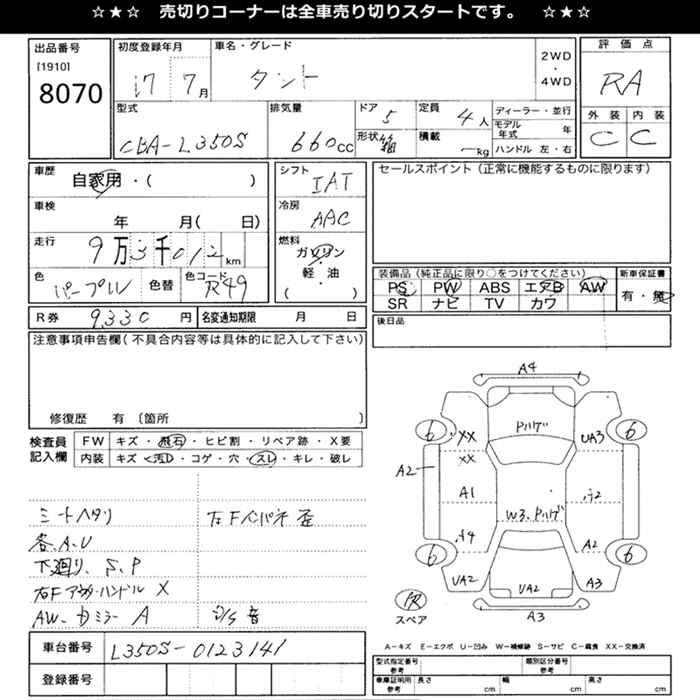 ☆★☆ 売切りコーナーは全車売り切りスタートです。 ☆★☆
出品番号
[1910]
8070
初度登録年月
17 7月
車名・グレード
タント
2WD
・
4WD
評価点
RA
外装 内装
C C
型式
CBA-L350S
排気量
660cc
ドア
5
形状
定員
4人
積載
kg
ディーラー・並行
モデル年式 年
ハンドル 左・右
車歴
自家用・( )
車検
年 月( 日)
走行
9万3千012km
色
パープル
色替
色コード
R49
シフト
IAT
冷房
AAC
燃料
ガソリン
軽・油
( )
セールスポイント(正常に機能するものに限ります)
装備品(純正品に限り○をつけてください)
PS PW ABS エアB AW
SR ナビ TV カワ
新車保証書
有・無
後日品
R券 9,330円
名変通知期限 月 日
注意事項申告欄(不具合内容等は具体的に記入して下さい)
修復歴 有〔箇所 〕
検査員
記入欄
FW キズ・飛石・ヒビ割・リペア跡・X要
内装 キズ・汚れ・コゲ・穴・スレ・キレ・破レ
シートヘタリ
各、A、U
下廻り、S、P
右Fアウターハンドル X
AW、ドミラー A
左Fインパネ 歪
音
車台番号 L350S-0123141
登録番号
A4
6 XX Pハゲ UA3 6
XX
A2
A1
W3、Pハゲ
A4 A2
6 6
UA2 UA2 A3
A3
スペア
A-キズ E-エクボ U-凹み W-補修跡 S-サビ C-腐食 XX-交換済
型式指定番号
参考
類別区分番号
参考
車庫証明用
参考
長さ cm 幅 cm 高さ cm